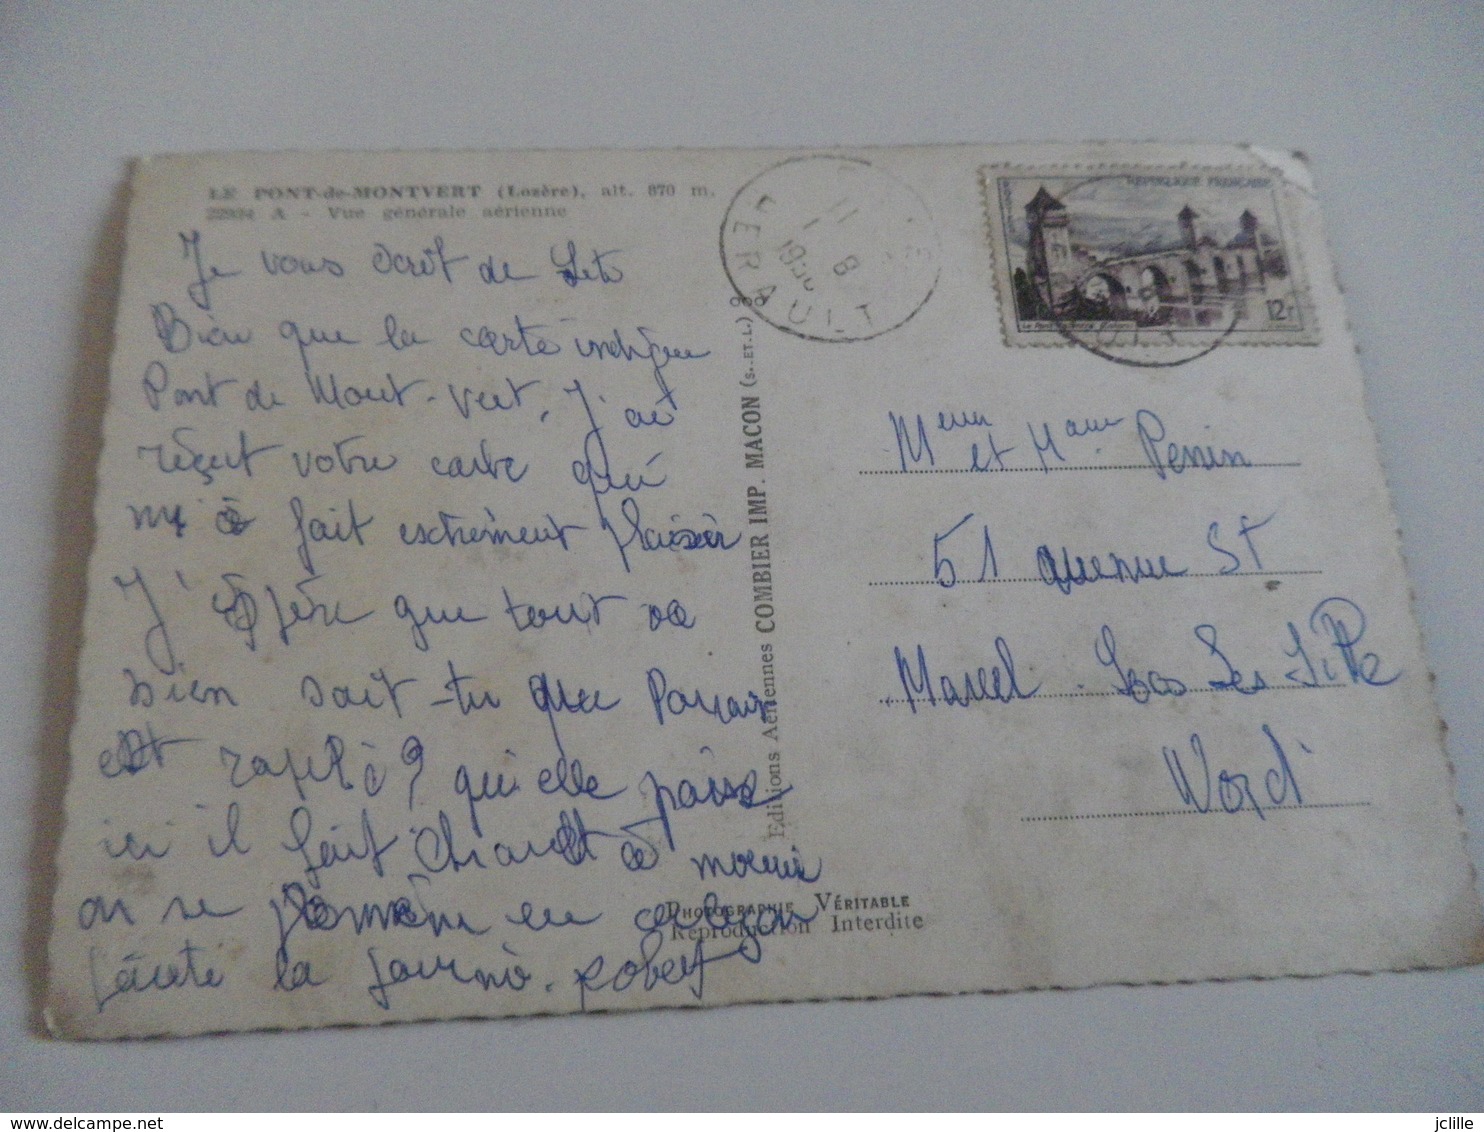 LE PONT-de-MONTVERT (Lozère), alt. 870 m.
22934 A - Vue générale aérienne
Je vous écrit de Sète
Bien que la carte indique
Pont de Mont-vert. J'ai
reçut votre carte qui
m'a fait extrèment plaisir
J'éspère que tout va
bien sait-tu que Parrain
est rapplé? qu'elle passe
ici il fait chaud à mourir
on se promène en caleçon
toute la journé. Robert
Editions Aériennes COMBIER IMP. MACON (S.-ET-L.)
PHOTOGRAPHIE VÉRITABLE
Reproduction Interdite
HERAULT
11 - 8
REPUBLIQUE FRANÇAISE
12F
Meur et Mame Penin
51 avenue St
Marcel Loos Les Lille
Nord
jclille